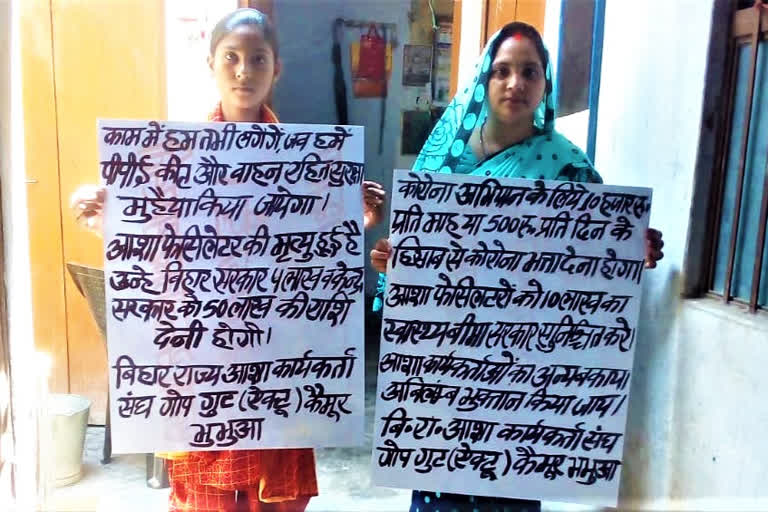 काम में हम तभी लगेगें, जब हमें
पीपीई कीट और वाहन सहित सुरक्षा
मुहैया किया जायेगा।
आशा फेसिलेटर की मृत्यु हुई है
उन्हे बिहार सरकार 4 लाख व केन्द्र
सरकार को 50 लाख की राशि
देनी होगी।
बिहार राज्य आशा कार्यकर्ता
संघ गोप गुट (ऐक्टू) कैमूर
भुभुआ
कोरोना अभियान के लिये 10 हजार रू.
प्रति माह या 500रू. प्रति दिन के
हिसाब से कोरोना भत्ता देना होगा
आशा फेसिलेटरों को 10 लाख का
स्वास्थ्य बीमा सरकार सुनिश्चित करे।
आशा कार्यकर्ताओं का अन्य बकाया
अविलंब भुक्तान किया जाय।
बि. रा. आशा कार्यकर्ता संघ
गोप गुट (ऐक्टू) कैमूर भभुआ